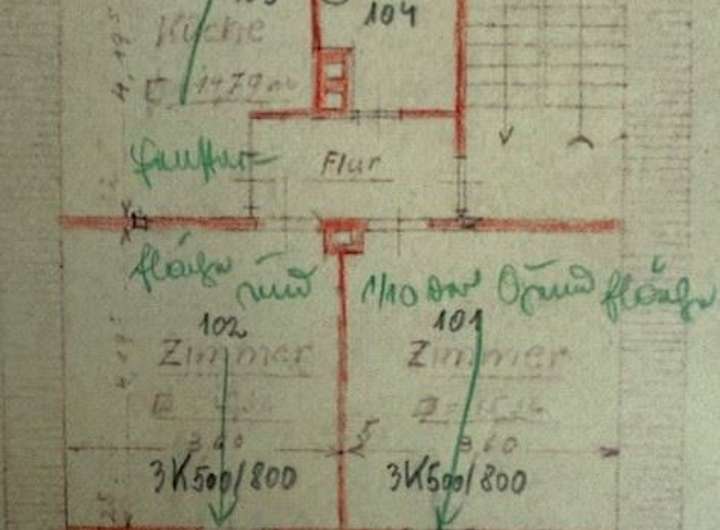 104
Küche
Flur
Fenster-
fläche nur 1/10 der Grundfläche
102 101
Zimmer Zimmer
3.60 3.60
3K500/800 3K500/800